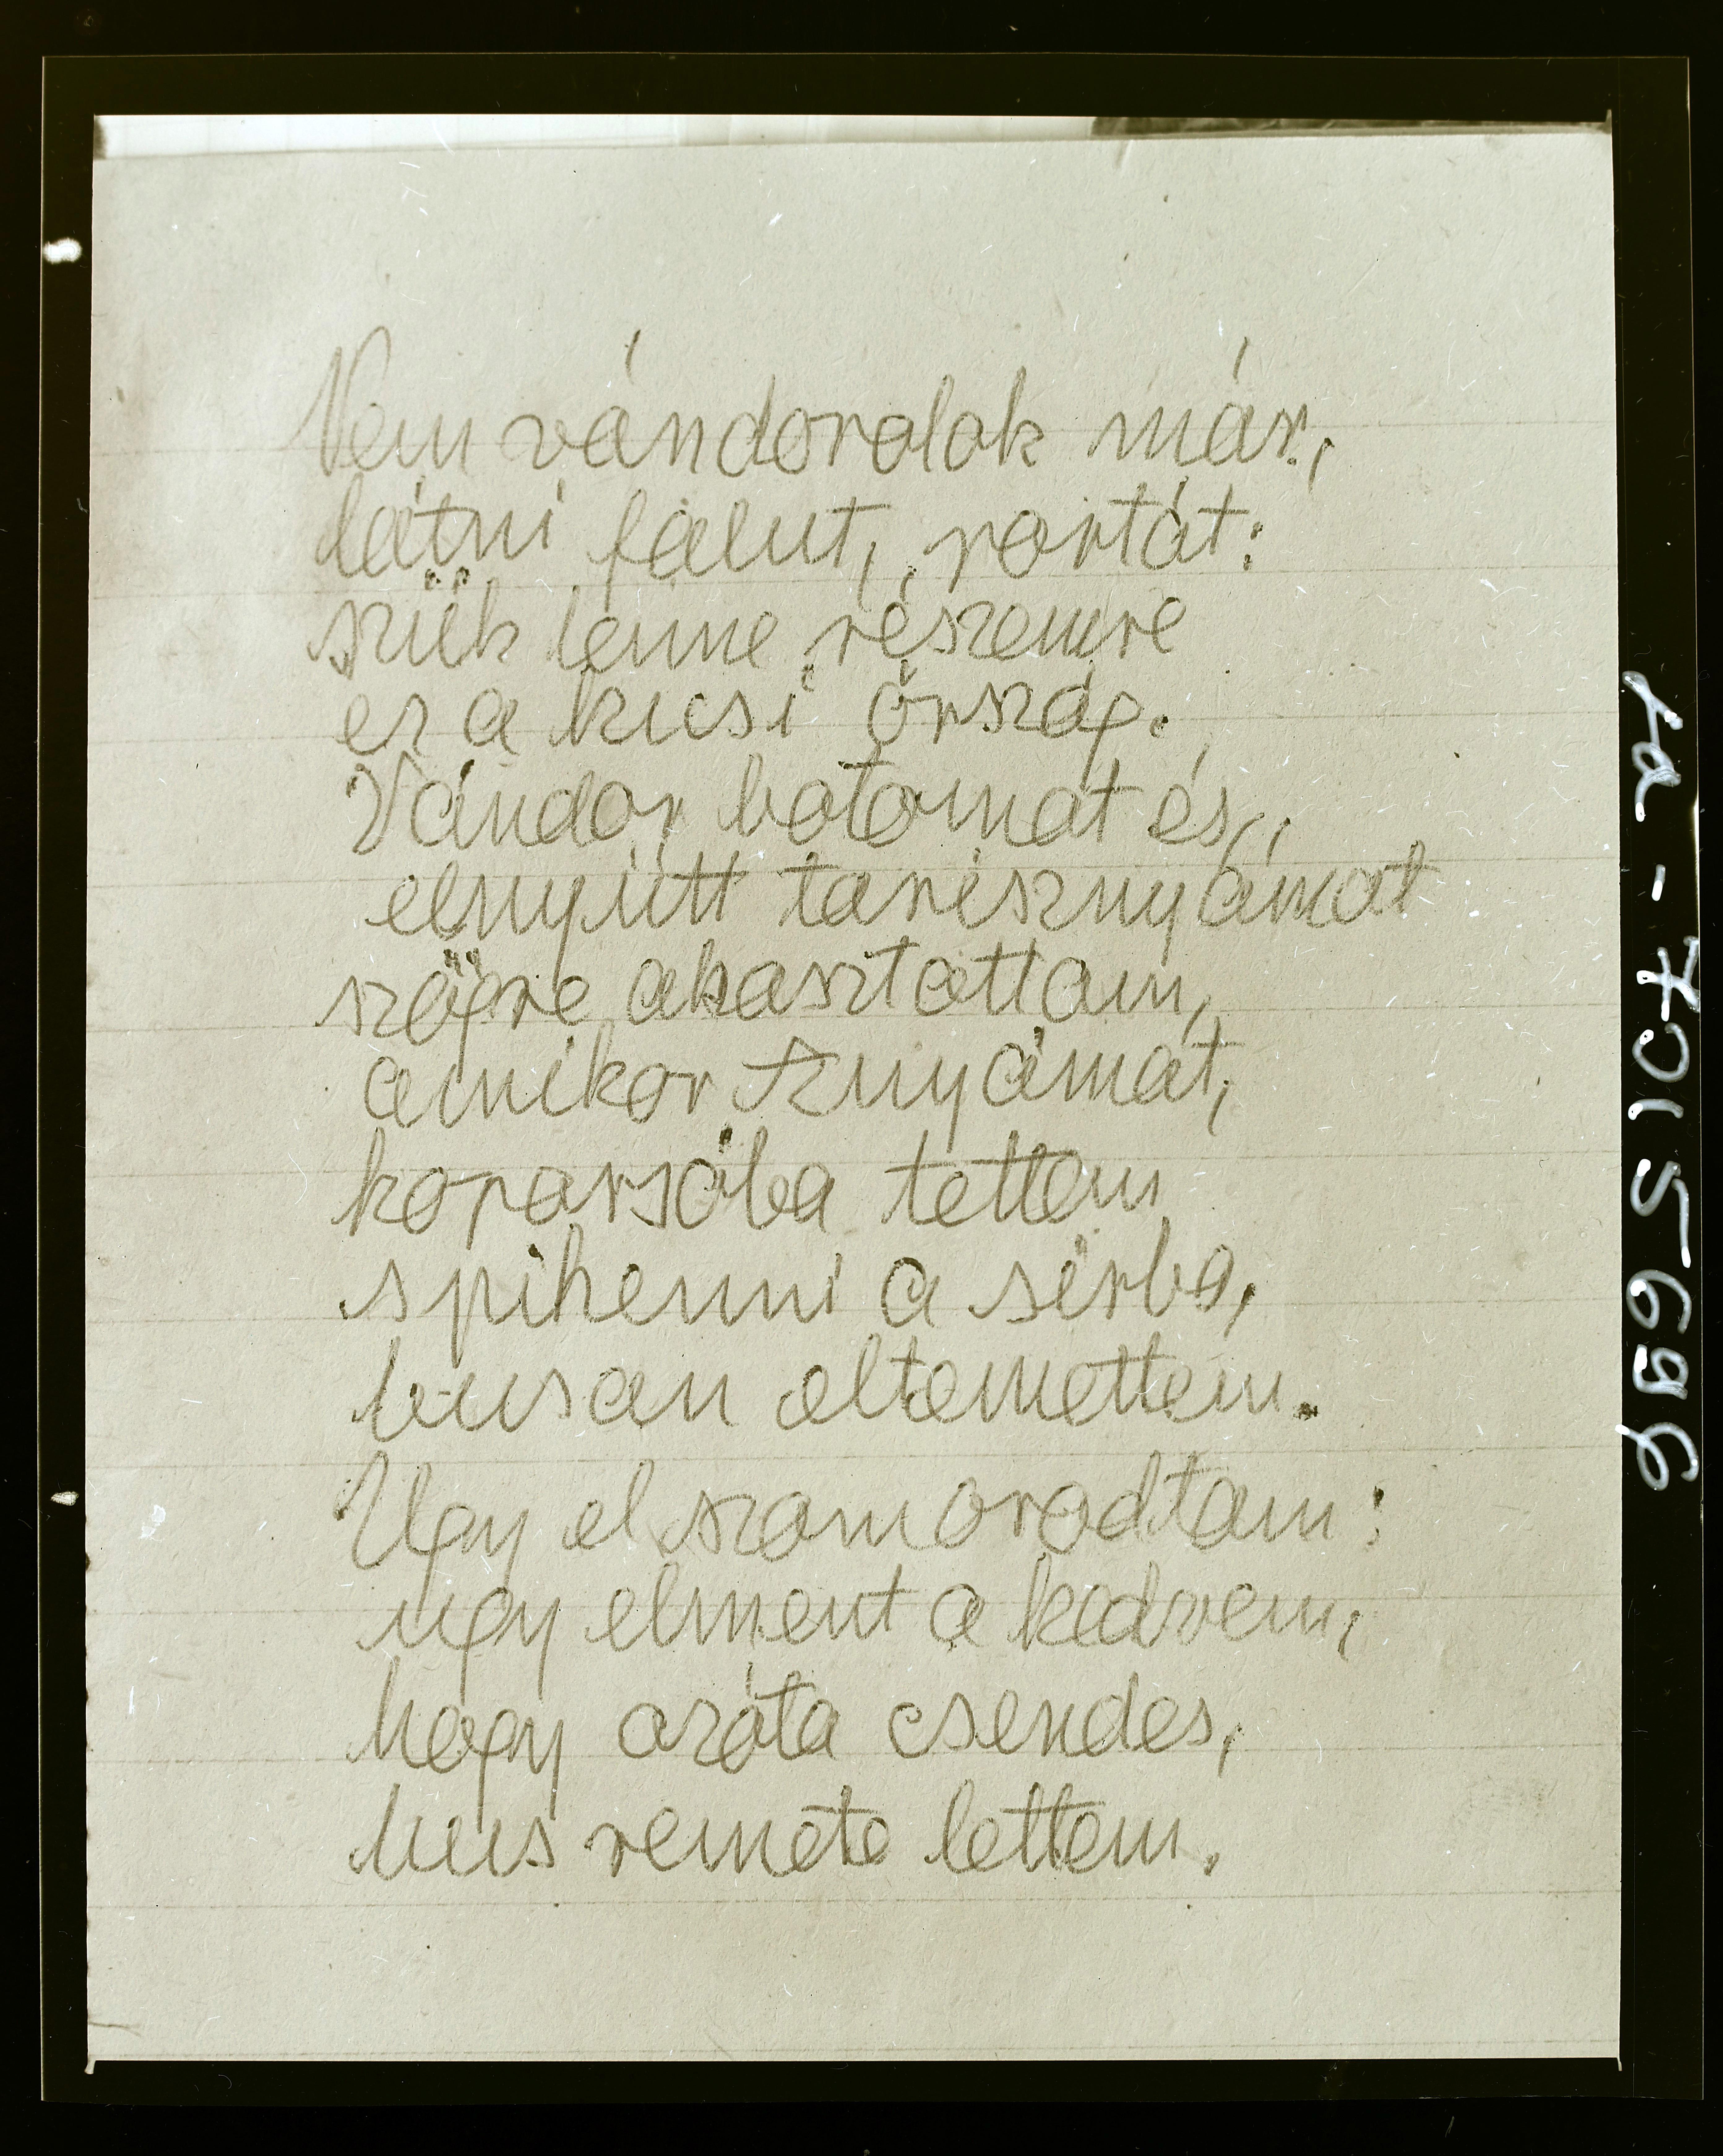 Nem vándorolok már,
látni falut, portát:
szük lenne részemre
ez a kicsi ország.
Vándor botomat és,
elnyütt tarisznyámat
szögre akasztottam,
amikor Anyámat,
koporsóba tettem
s pihenni a sírba,
busan eltemettem.
Ugy elszomorodtam:
ugy elment a kedvem,
hogy azóta csendes,
bus remete lettem.